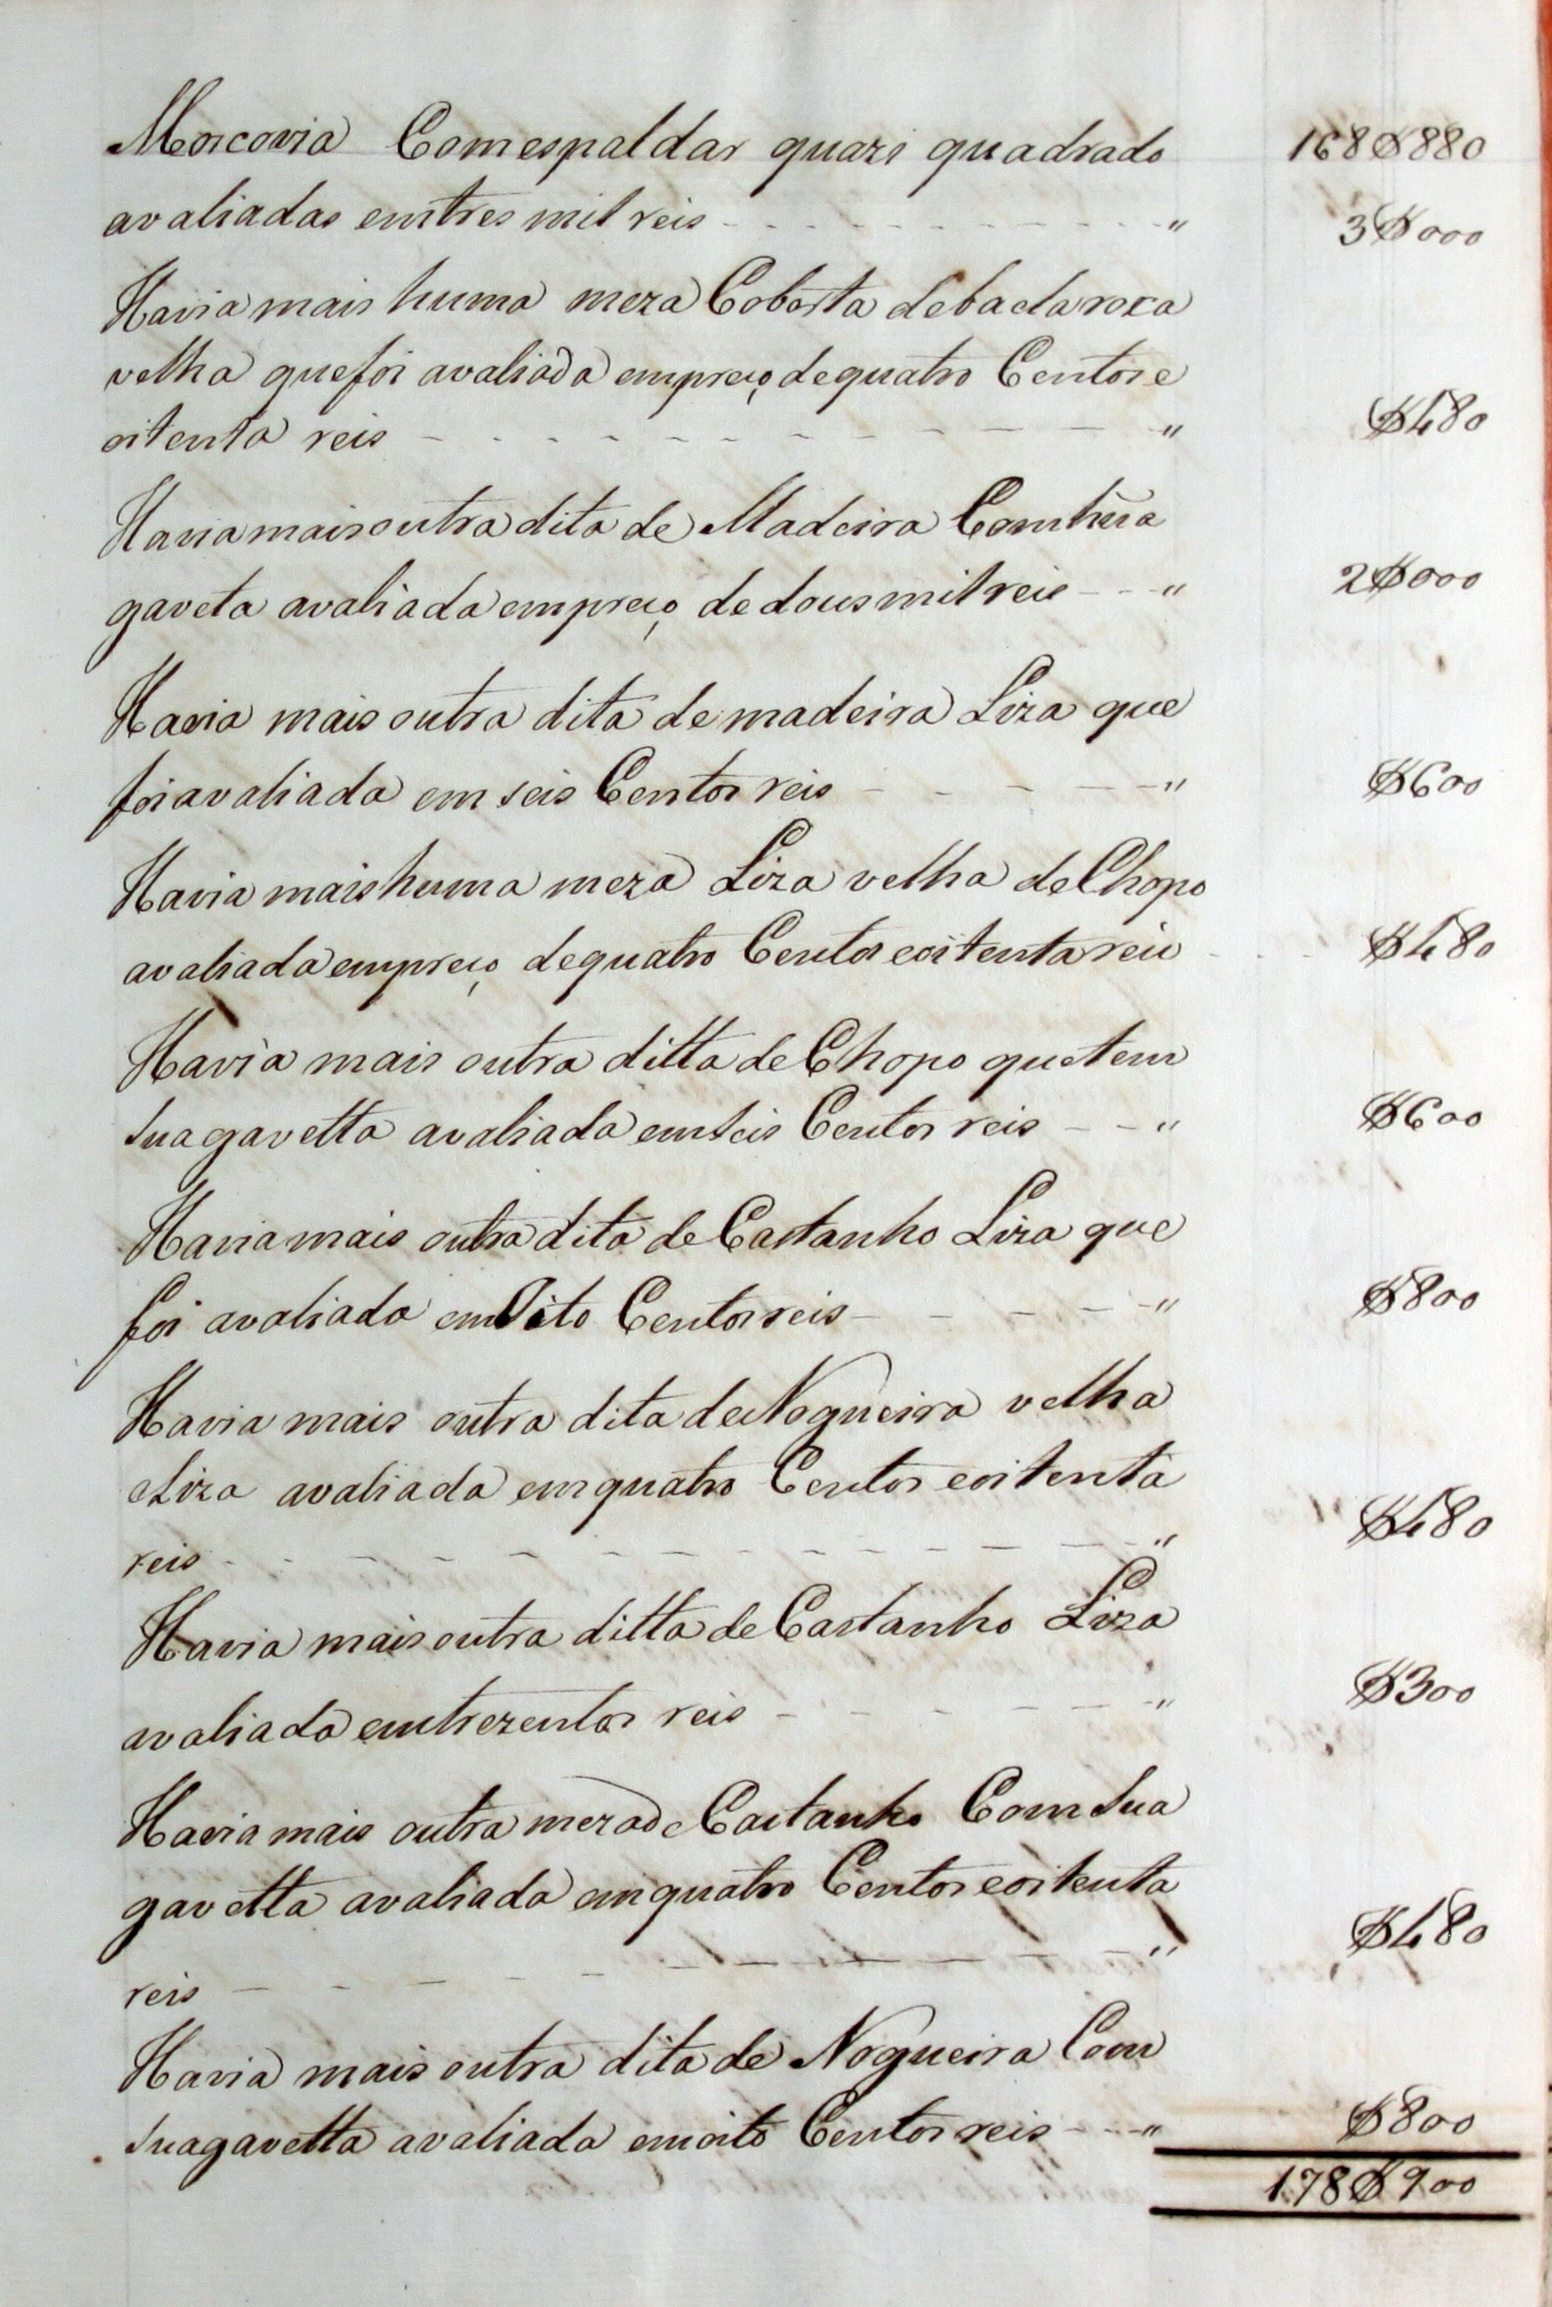 Moscovia Com espaldas quazi quadrado 168$880
avaliadas em tres mil reis - - - - - - - - - - " 3$000
Havia mais huma meza Coberta debada roxa
velha que foi avaliada em preço de quatro Centos e
oitenta reis - - - - - - - - - - - " $480
Havia mais outra dita de Madeira Com hũa
gaveta avaliada em preço de dous mil reis - - - " 2$000
Havia mais outra dita de madeira Liza que
foi avaliada em seis Centos reis - - - - - " $600
Havia mais huma meza Liza velha de Chopo
avaliada em preço de quatro Centos e oitenta reis - - - $480
Havia mais outra ditta de Chopo que tem
sua gavetta avaliada em seis Centos reis - - " $600
Havia mais outra dita de Castanho Liza que
foi avaliada em Oito Centos reis - - - - - " $800
Havia mais outra dita de Nogueira velha
Liza avaliada em quatro Centos e oitenta
reis - - - - - - - - - - - - " $480
Havia mais outra ditta de Castanho Liza
avaliada em trezentos reis - - - - - - " $300
Havia mais outra meza de Castanho Com sua
gavetta avaliada em quatro Centos e oitenta
reis - - - - - - - - - - - " $480
Havia mais outra dita de Nogueira Com
sua gavetta avaliada em oito Centos reis - - - " $800
178$900